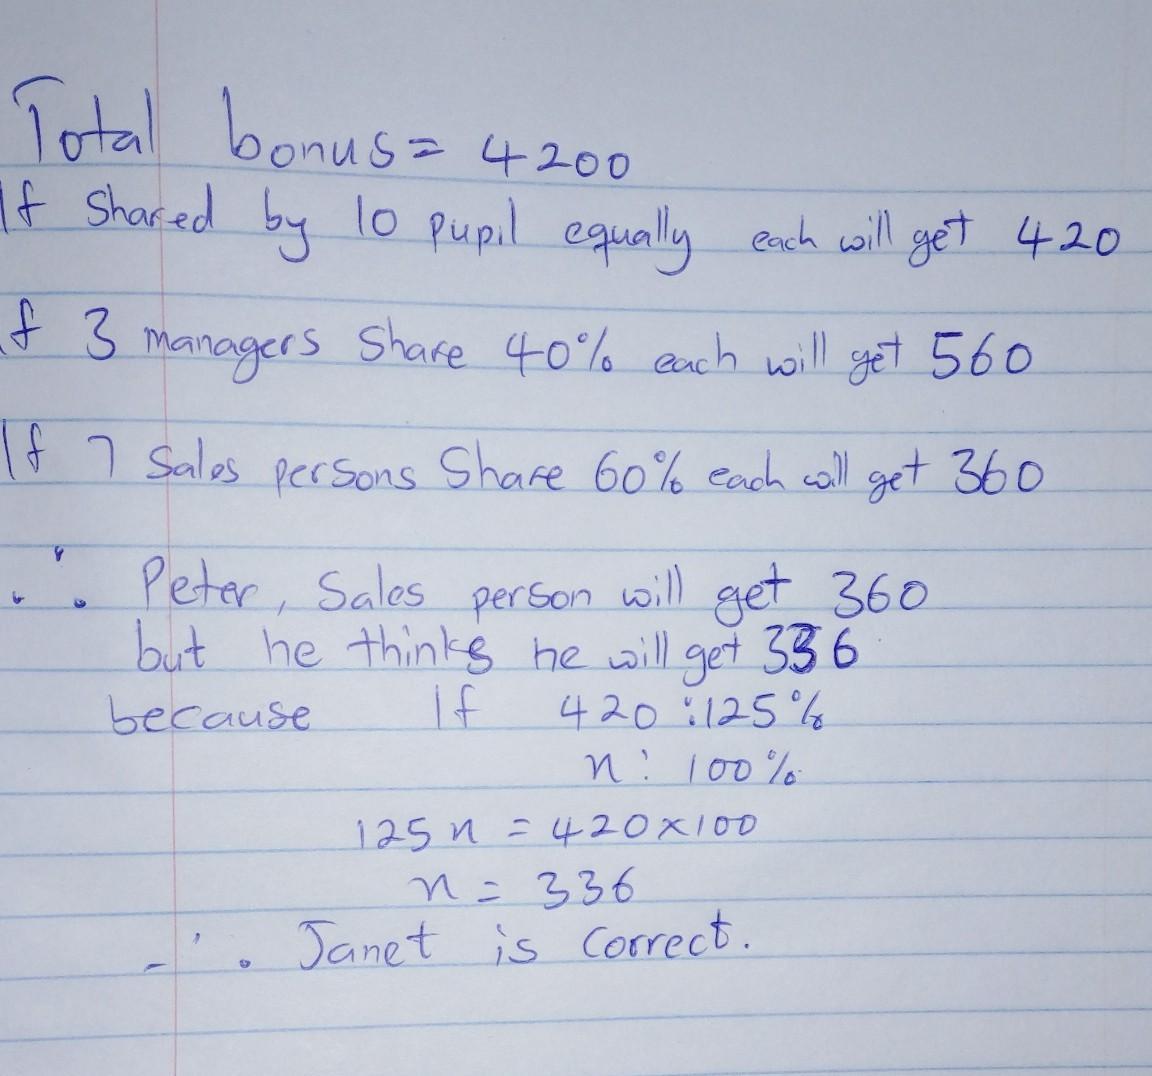 Total bonus = 4200
If Shared by 10 pupil equally each will get 420
If 3 managers Share 40% each will get 560
If 7 Sales persons Share 60% each will get 360
∴ Peter, Sales person will get 360
but he thinks he will get 336
because If 420 : 125%
n : 100%
125 n = 420 x 100
n = 336
∴ Janet is Correct.